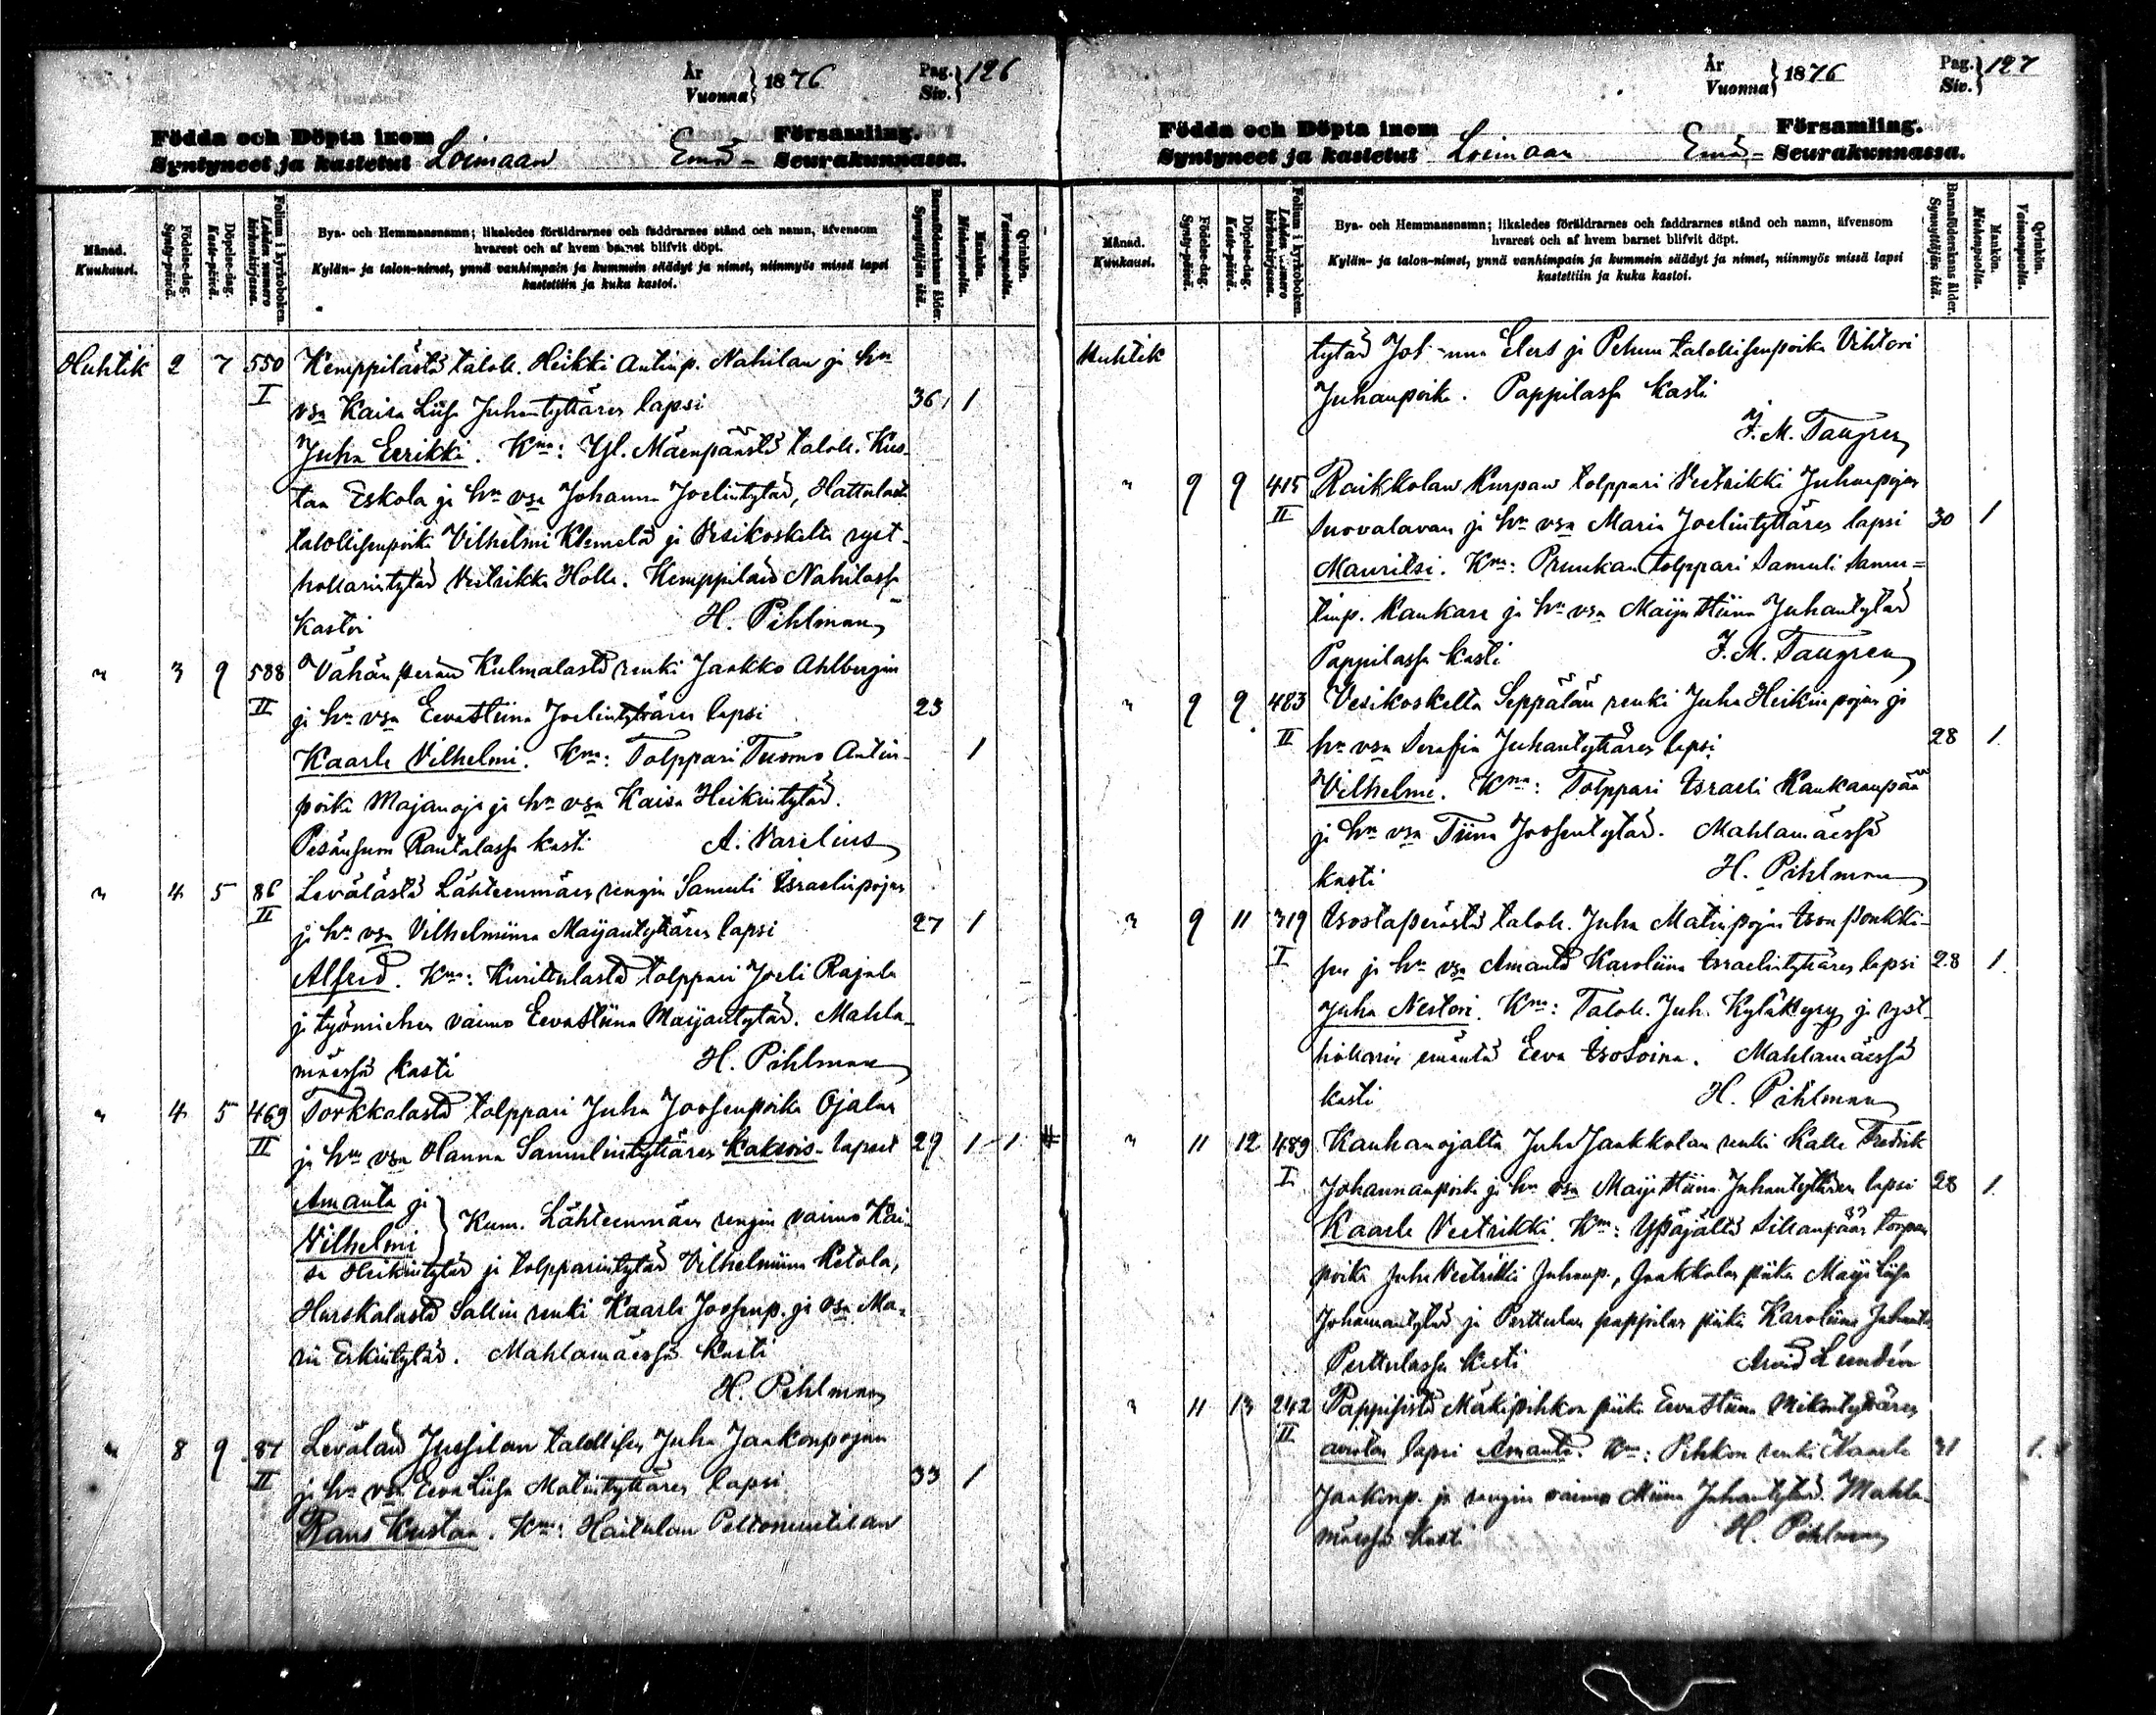 År
Vuonna } 1876
Pag.
Siv. } 126
Födda och Döpta inom
Syntyneet ja kastetut Loimaan Emä- Församling.
Seurakunnassa.
Månad.
Kuukausi.
Födelse-dag.
Synty-päivä.
Döpelse-dag.
Kaste-päivä.
Folium i kyrkoboken.
Lehden numero kirkonkirjassa.
Bya- och Hemmansnamn; likaledes föräldrarnes och faddrarnes stånd och namn, äfvensom
hvarest och af hvem barnet blifvit döpt.
Kylän- ja talon-nimet, ynnä vanhimpain ja kummein säädyt ja nimet, niinmyös missä lapsi
kastettiin ja kuka kastoi.
Barnaföderskans ålder.
Synnyttäjän ikä.
Mankön.
Miehenpuolia.
Qvinkön.
Vaimonpuolia.
Huhtik 2 7 550 Kemppilästä taloll. Heikki Antinp. Nahilan ja hn
I vsa Kaisa Liisa Juhantyttären lapsi 36 1
Juha Eerikki. Kmn: Yl. Mäenpäästä taloll. Kus-
taa Eskola ja hn vsa Johanna Joelintytär, Hattulasta
talollisenpoika Vilhelmi Klemelä ja Vesikoskelta ryst-
hollarintytär Vectrikka Holla. Kemppilän Nahilassa
kastoi H. Pihlman
" 3 9 588 Vähänperän Kulmalasta renki Jaakko Ahlbergin
II ja hn vsa Eevastiina Joelintyttären lapsi 23
Kaarle Vilhelmi. Kmn: Tolppari Tuomo Antin- 1
poika Majanoja ja hn vsa Kaisa Heikintytär.
Pesänsuun Rautalassa kasti A. Varelius
" 4 5 86 Levälästä Lähteenmäen rengin Samuli Israelinpojan
II ja hn vsa Vilhelmiina Maijantyttären lapsi 27 1
Alfred. Kmn: Kurittulasta tolppari Joeli Rajala
ja työmiehen vaimo Eevastiina Maijantytär. Mahla-
mäessä kasti H. Pihlman
" 4 5 469 Torkkalasta tolppari Juha Joosenpoika Ojalan
II ja hn vsa Hanna Samulintyttären Kaksois-lapset 29 1 1
Amanta ja
Vilhelmi } Kum. Lähteenmäen rengin vaimo Kai-
sa Heikintytär ja tolpparintytär Vilhelmiina Ketola,
Hurskalasta Sallin renki Kaarle Joosenp. ja vsa Ma-
ria Erkintytär. Mahlamäessä kasti
H. Pihlman
" 8 9 87 Levälän Jussilan talollisen Juha Jaakonpojan
II ja hn vsa Eeva Liisa Matintyttären lapsi 33 1
Frans Kustaa. Kmn: Haitulan Peltoniitilan
År
Vuonna } 1876
Pag.
Siv. } 127
Födda och Döpta inom
Syntyneet ja kastetut Loimaan Emä- Församling.
Seurakunnassa.
Månad.
Kuukausi.
Födelse-dag.
Synty-päivä.
Döpelse-dag.
Kaste-päivä.
Folium i kyrkoboken.
Lehden numero kirkonkirjassa.
Bya- och Hemmansnamn; likaledes föräldrarnes och faddrarnes stånd och namn, äfvensom
hvarest och af hvem barnet blifvit döpt.
Kylän- ja talon-nimet, ynnä vanhimpain ja kummein säädyt ja nimet, niinmyös missä lapsi
kastettiin ja kuka kastoi.
Barnaföderskans ålder.
Synnyttäjän ikä.
Mankön.
Miehenpuolia.
Qvinkön.
Vaimonpuolia.
Huhtik tytär ja talollisenpoika Vihtori
Juhanpoika. Pappilassa kasti
F. M. Taugren
" 9 9 415 Raikkolan Kurpan tolppari Vectrikki Juhanpojan
II Suovalavan ja hn vsa Maria Joelintyttären lapsi 30 1
Mauritsi. Kmn: Pruukan tolppari Samuli Samu-
linp. Kankare ja hn vsa Maija Stiina Juhantytär
Pappilassa kasti F. M. Taugren
" 9 9 483 Vesikoskelta Seppälän renki Juha Heikinpojan ja
II hn vsa Serafia Juhantyttären lapsi 28 1
Vilhelmi. Kmn: Tolppari Israeli Kankaanpää
ja hn vsa Tiina Joosentytär. Mahlamäessä
kasti H. Pihlman
" 9 11 319 Isostaperästä taloll. Juha Matinpojan Ison
I ja hn vsa Amanta Karoliina Israelintyttären lapsi 28 1
Juha Nestori. Kmn: Taloll. Juh. Kyläkyry ja ryst-
hollarin emäntä Eeva IsoSoina. Mahlamäessä
kasti H. Pihlman
" 11 12 489 Kauhanojalta Juha Jaakkolan renki Kalle Fredrik
I Johannanpoika ja hn vsa Maija Stiina Juhantyttären lapsi 28 1
Kaarle Vectrikki. Kmn: Ypäjältä Sillanpään torpan
poika Juha Vectrikki Juhanp., Jaakkolan piika Maija Liisa
Johanantytär ja Perttulan pappilan piika Karoliina Juhant.
Perttulassa kasti Arvid Lundén
" 11 13 242 Pappisista Mäkipihkon piika Eeva Stiina Mikintyttären
II avioton lapsi Amanta. Kmn: Pihkon renki Kaarle 31 1
Jaakonp. ja rengin vaimo Miina Juhantytär. Mahla-
mäessä kasti H. Pihlman